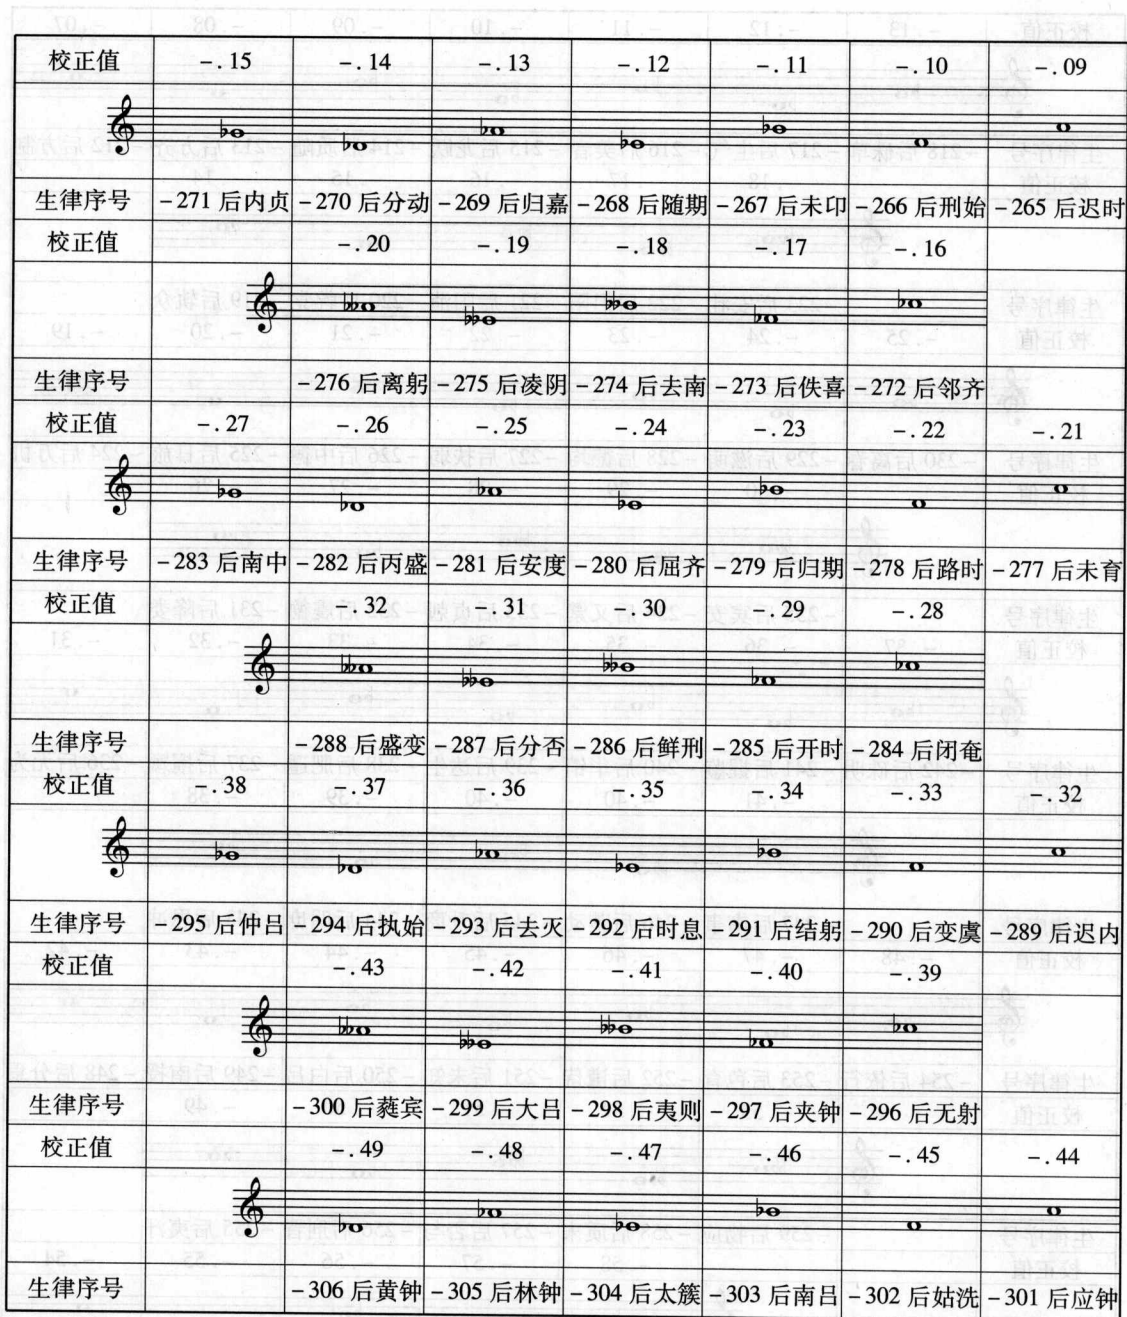 校正值 -.15 -.14 -.13 -.12 -.11 -.10 -.09
生律序号 -271 后内贞 -270 后分动 -269 后归嘉 -268 后随期 -267 后未卬 -266 后刑始 -265 后迟时
校正值 -.20 -.19 -.18 -.17 -.16
生律序号 -276 后离躬 -275 后凌阴 -274 后去南 -273 后佚喜 -272 后邻齐
校正值 -.27 -.26 -.25 -.24 -.23 -.22 -.21
生律序号 -283 后南中 -282 后丙盛 -281 后安度 -280 后屈齐 -279 后归期 -278 后路时 -277 后未育
校正值 -.32 -.31 -.30 -.29 -.28
生律序号 -288 后盛变 -287 后分否 -286 后鲜刑 -285 后开时 -284 后闭奄
校正值 -.38 -.37 -.36 -.35 -.34 -.33 -.32
生律序号 -295 后仲吕 -294 后执始 -293 后去灭 -292 后时息 -291 后结躬 -290 后变虞 -289 后迟内
校正值 -.43 -.42 -.41 -.40 -.39
生律序号 -300 后蕤宾 -299 后大吕 -298 后夷则 -297 后夹钟 -296 后无射
校正值 -.49 -.48 -.47 -.46 -.45 -.44
生律序号 -306 后黄钟 -305 后林钟 -304 后太簇 -303 后南吕 -302 后姑洗 -301 后应钟